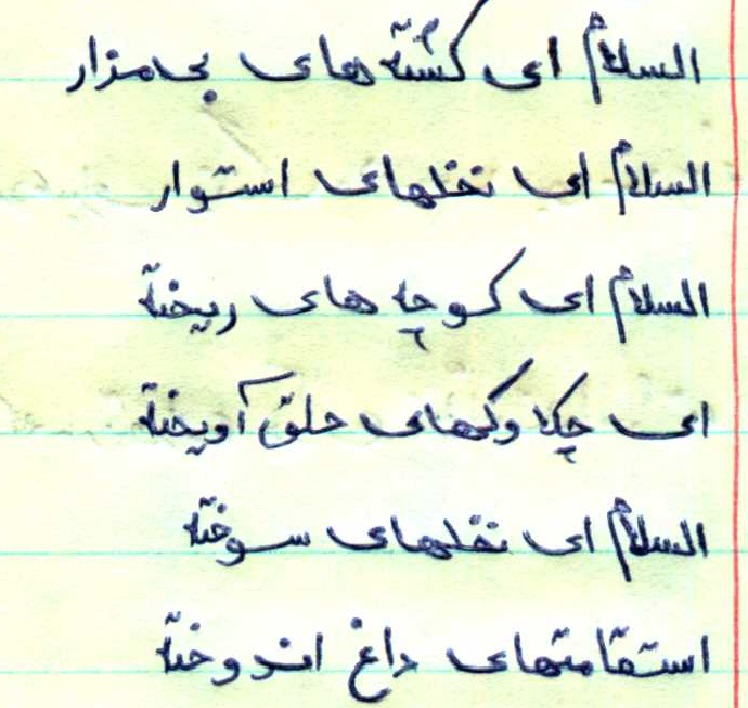 السلام ای کشته های بی مزار
السلام ای نخلهای استوار
السلام ای کوچه های ریخته
ای چکاوکهای حلق آویخته
السلام ای نخلهای سوخته
استقامتهای داغ اندوخته